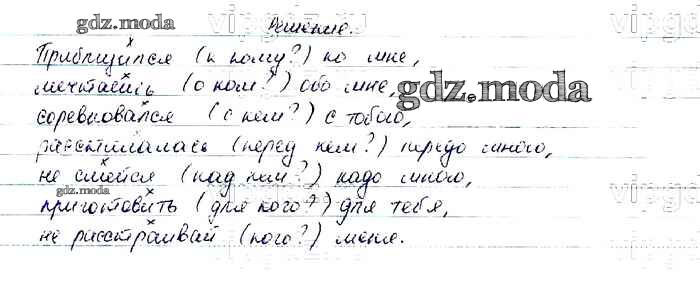 Решение.
Приблизился (к кому?) ко мне,
мечтаешь (о ком?) обо мне,
соревновался (с кем?) с тобою,
расстилалась (перед кем?) передо мною,
не смейся (над кем?) надо мною,
приготовить (для кого?) для тебя,
не расстраивай (кого?) меня.
gdz.moda
gdz.moda
gdz.moda